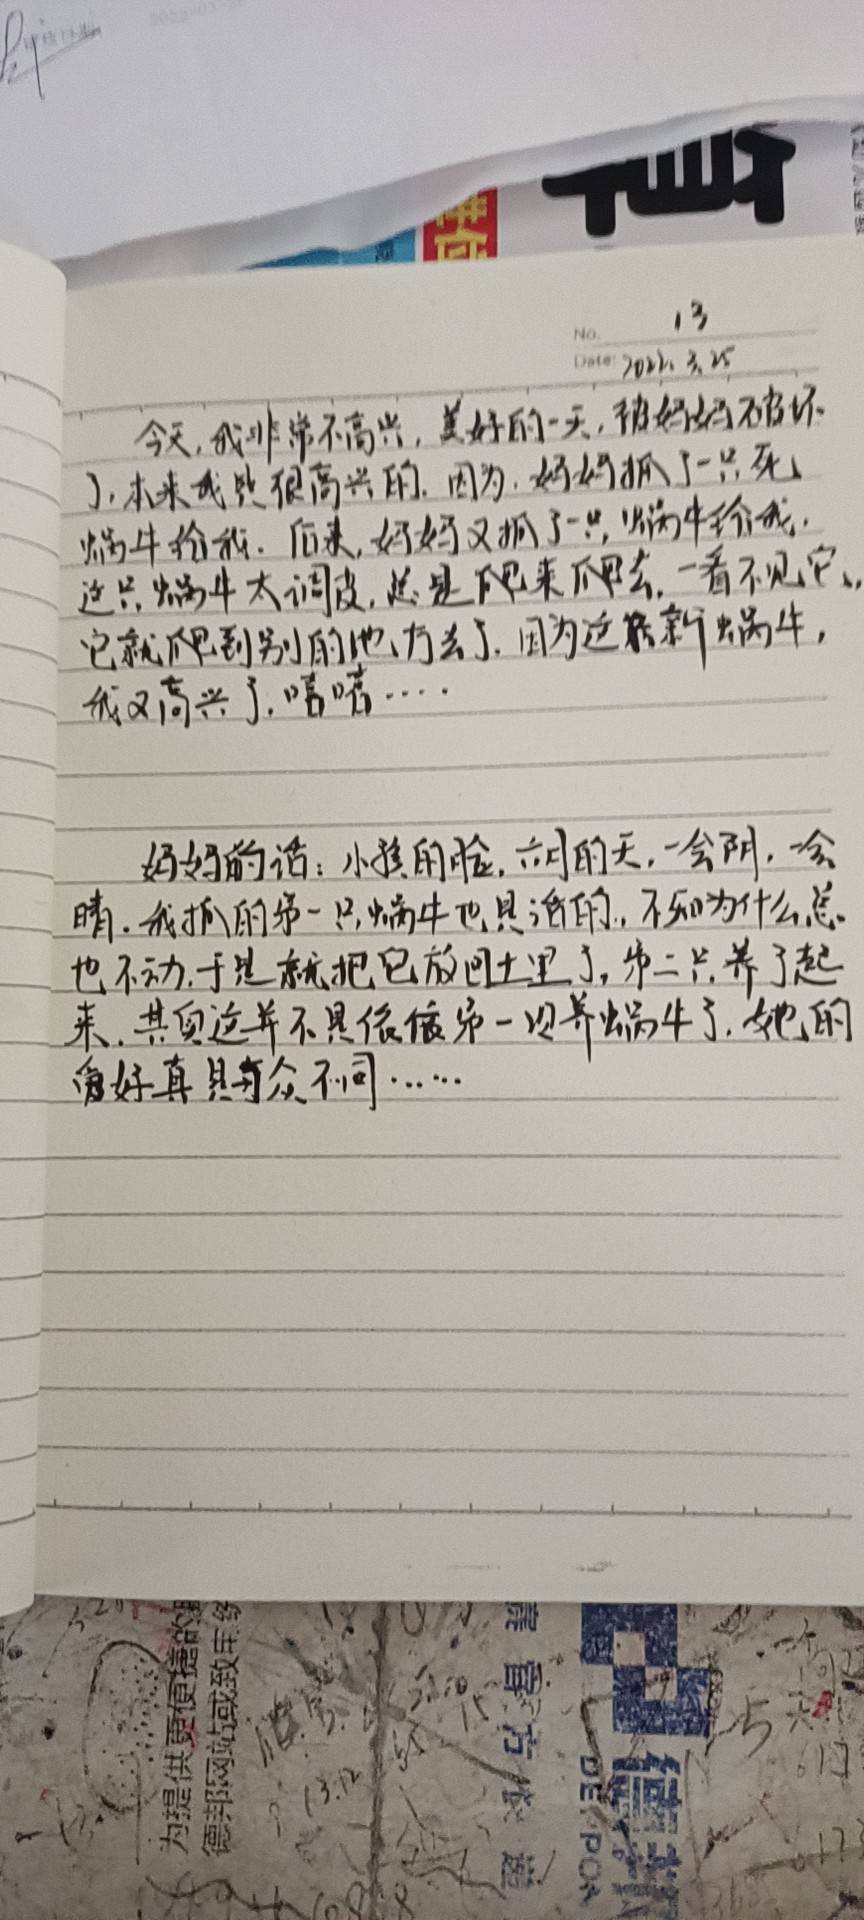 No. 13
Date: 2022.3.25
今天,我非常不高兴,美好的一天,被妈妈不破坏
了,本来我是很高兴的.因为,妈妈抓了一只死
蜗牛给我.后来,妈妈又抓了一只蜗牛给我.
这只蜗牛太调皮,总是爬来爬去,一看不见它,
它就爬到别的地方去了.因为这新蜗牛,
我又高兴了,嘻嘻····
妈妈的话:小孩的脸,六月的天,一会阴,一会
晴.我抓的第一只蜗牛也是活的,不知为什么总
也不动,于是就把它放回土里了,第二只养了起
来.其实这并不是依依第一次养蜗牛了,她的
爱好真是与众不同······
为提供更便捷的
德邦网站或致车
官方
德邦
DEPPON
13.12